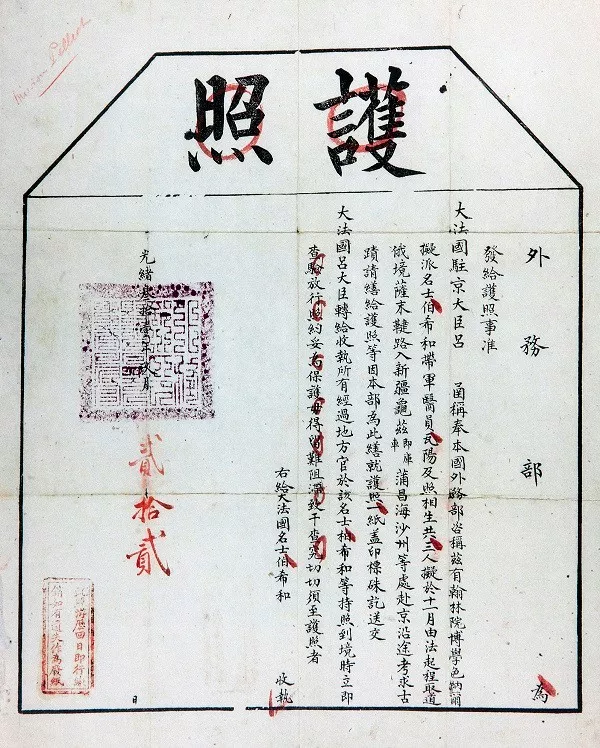 Mission Pelliot
護照
外務部 為
發給護照事准
大法國駐京大臣呂 函稱奉本國外務部咨稱茲有翰林院博學色納爾
擬派名士伯希和帶軍醫員瓦陽及照相生共三人擬於十一月由法起程取道
俄境薩末鞬路入新疆龜茲即庫車蒲昌海沙州等處赴京沿途考求古
蹟請繕給護照等因本部為此繕就護照一紙蓋印標硃訖送交
大法國呂大臣轉給收執所有經過地方官於該名士伯希和等持照到境時立即
查驗放行照約妥為保護毋得留難阻滯致干查究切切須至護照者
右給大法國名士伯希和 收執
光緒叁拾壹年玖月 日
貳拾貳
游歷回日即行繳
銷如有遺失作為廢紙